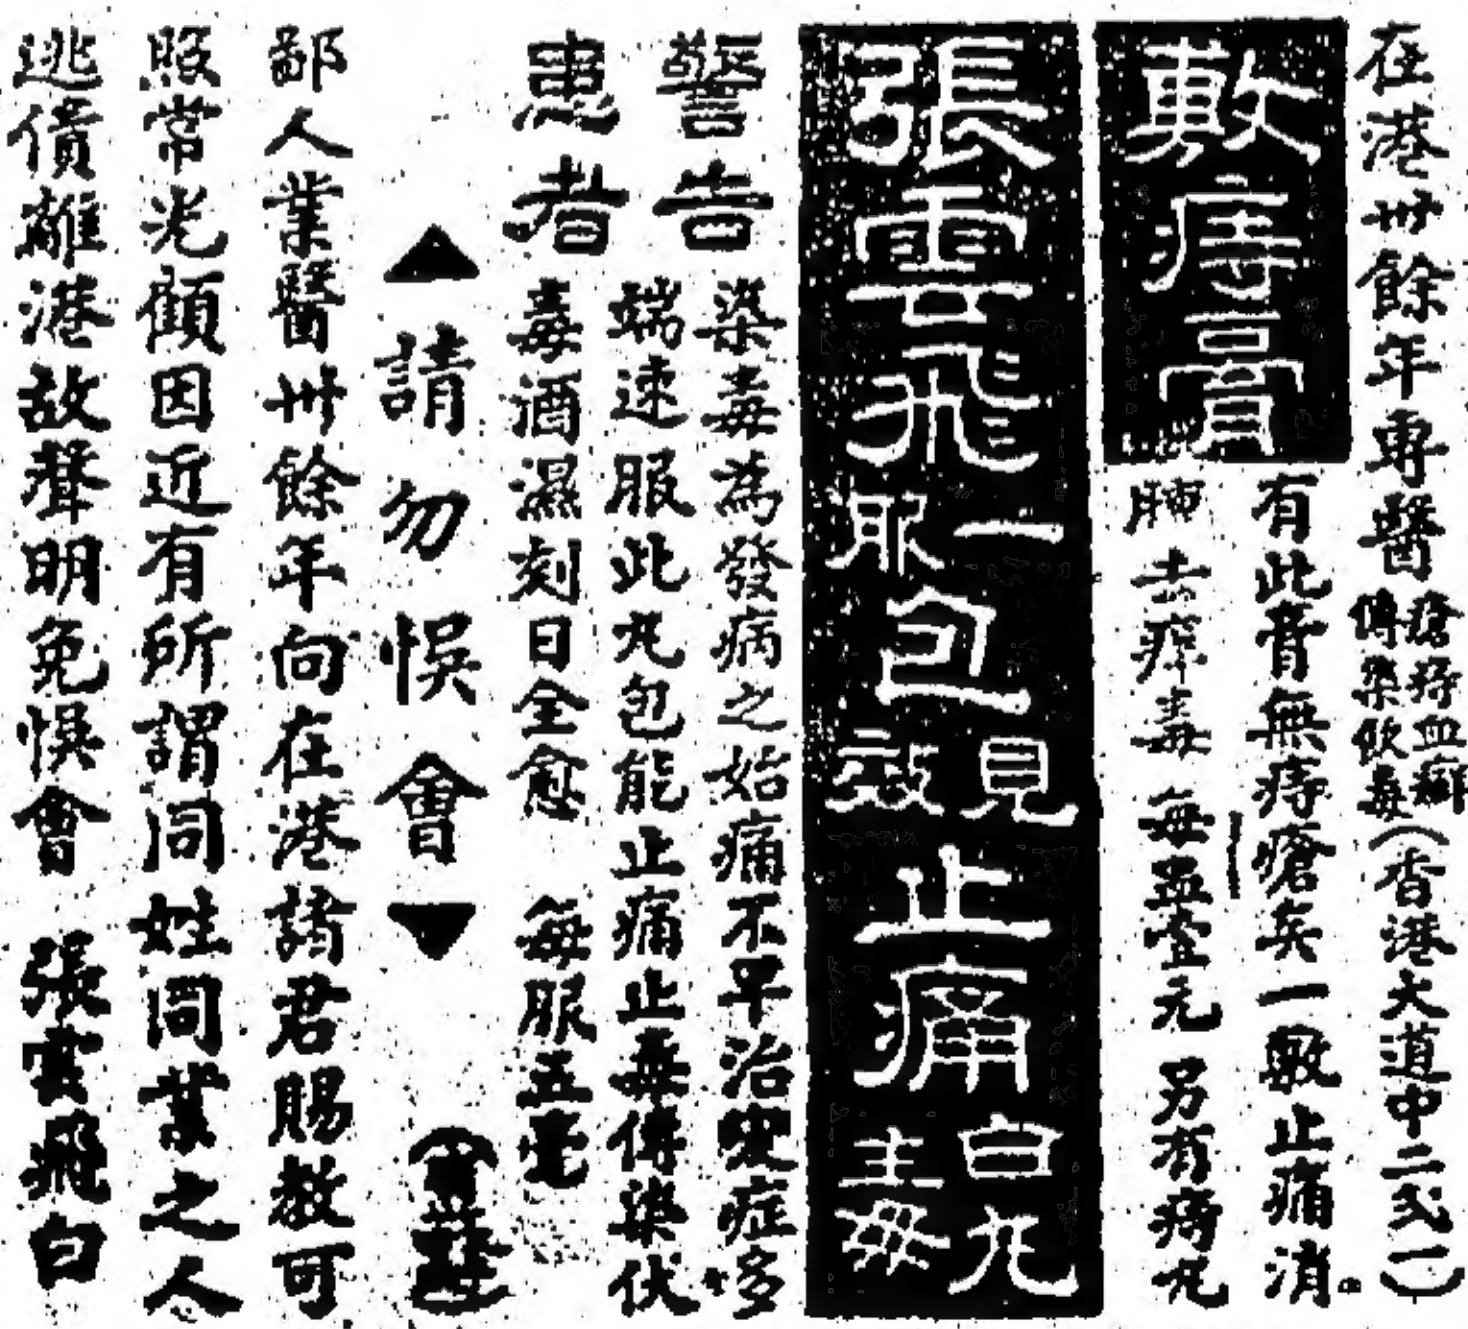 在港卅餘年專醫瘡痔血癬傳染飲毒(香港大道中二弍一)
敷痔膏
有此膏無痔瘡矣一敷止痛消
腫去瘴毒 每盅壹元 另有痔丸
張雲飛一服包見效止痛白丸主毋
警告患者
染毒為發病之始痛不早治變症多
端速服此丸包能止痛止毒傳染伏
毒酒濕刻日全愈 每服五毫
▲請勿悮會▼
鄙人業醫卅餘年向在港諸君賜教可
照常光顧因近有所謂同姓同業之人
逃債離港故聲明免悮會 張雲飛白